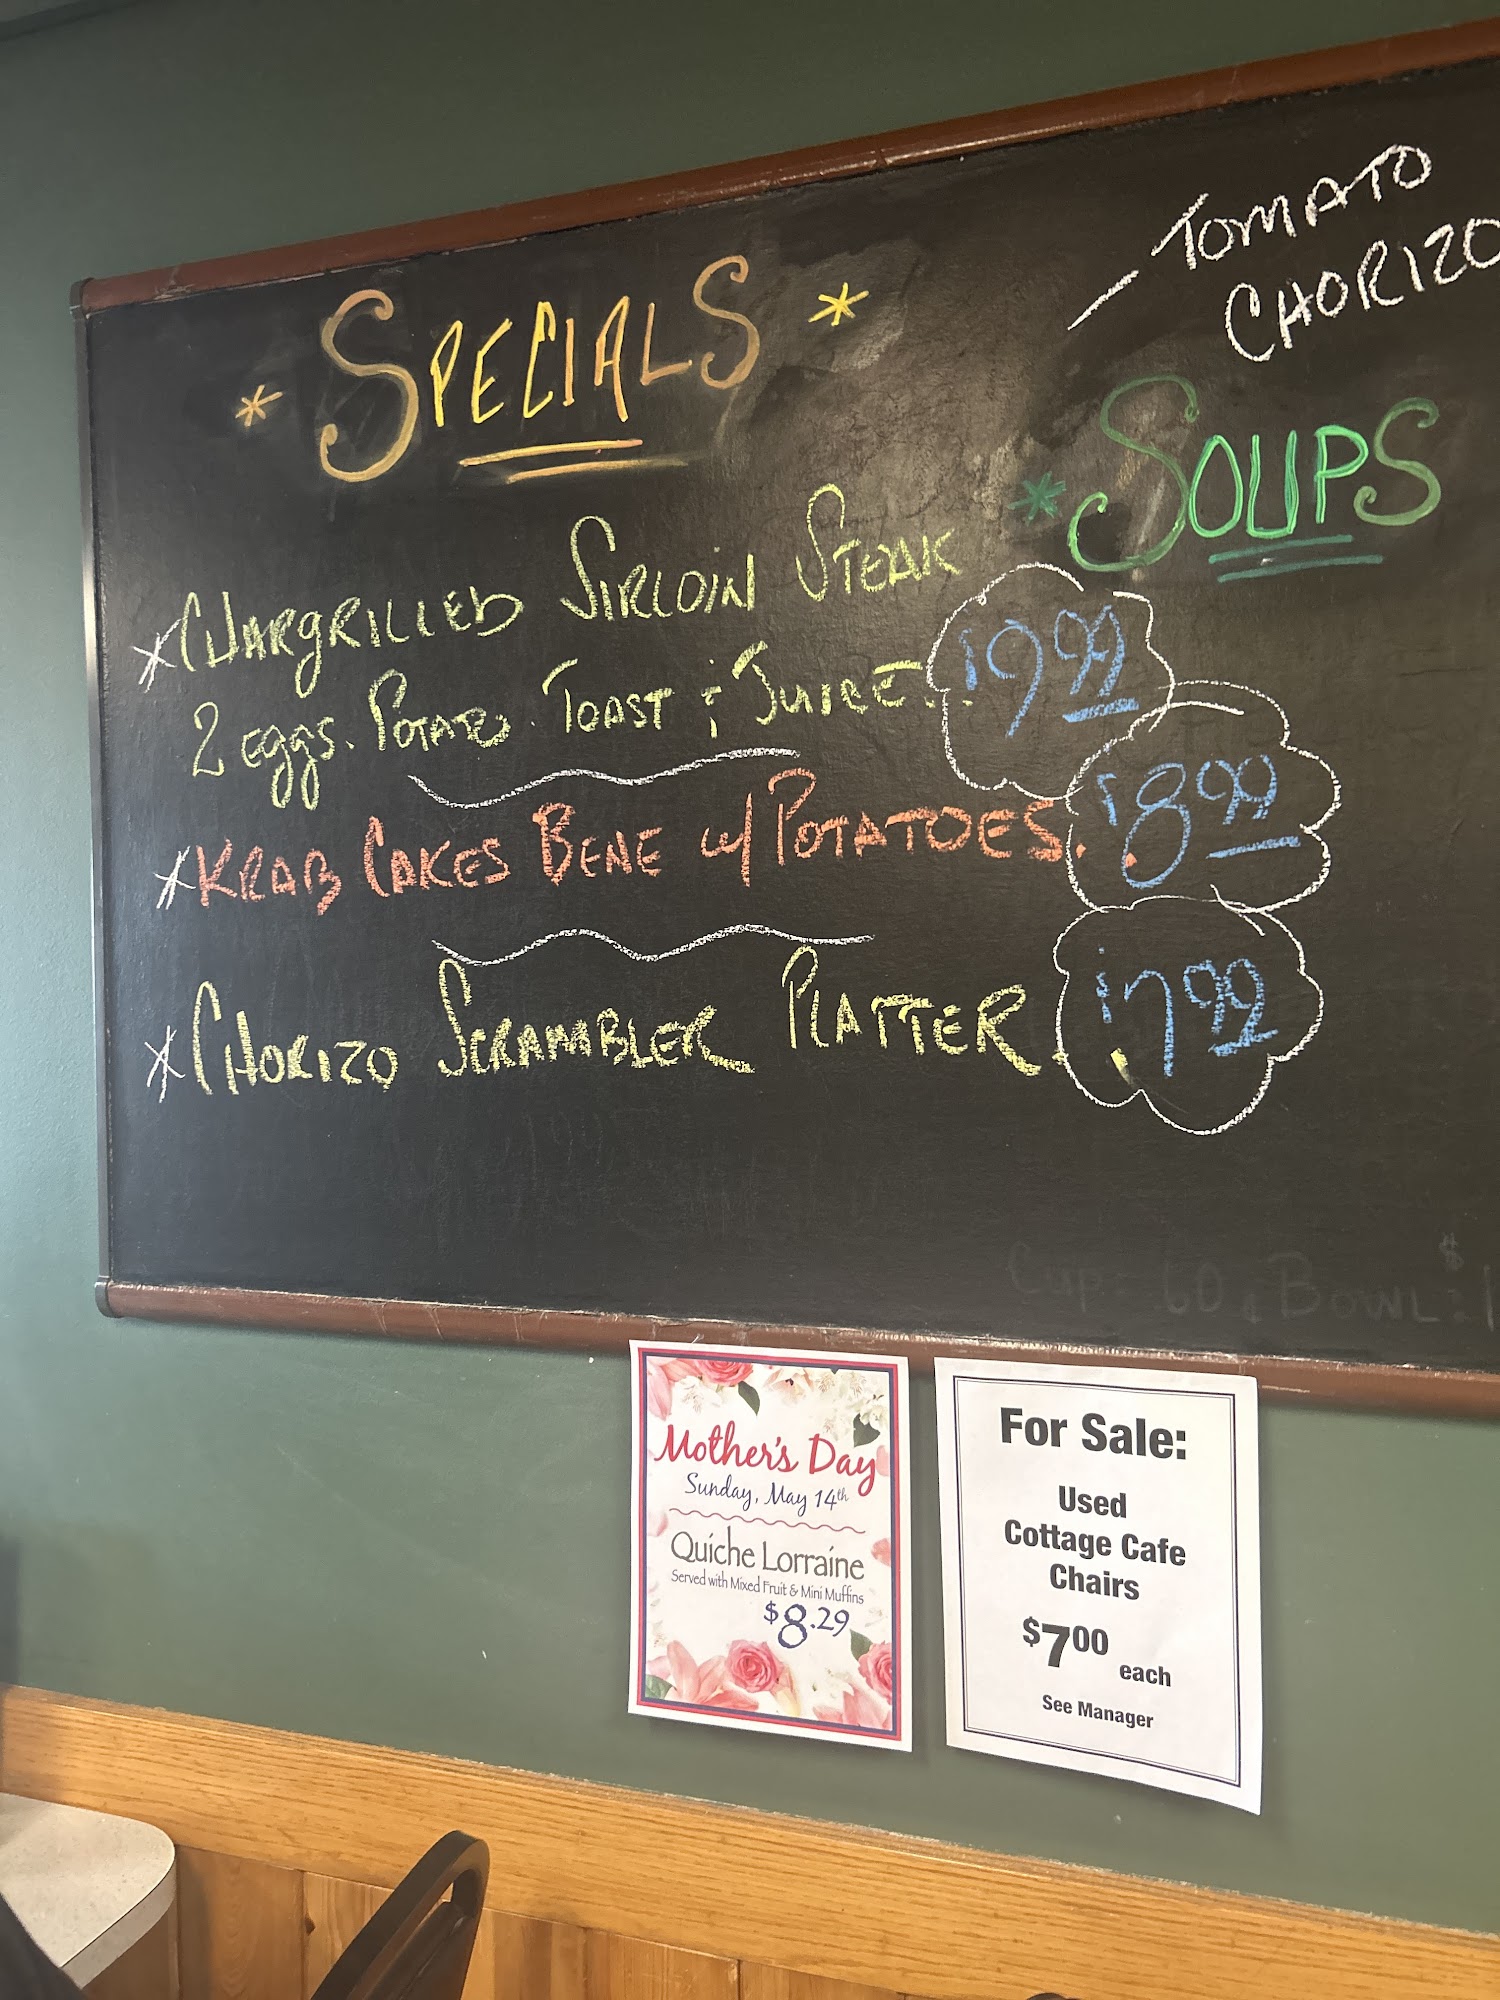 * SPECIALS *
* CHARGRILLED SIRLOIN STEAK
2 eggs. POTATO. TOAST & JUICE. . $9.99
* KRAB CAKES BENE w/ POTATOES. . $8.99
* CHORIZO SCRAMBLER PLATTER . . $7.99
- TOMATO
CHORIZO
* SOUPS
Cup BOWL
Mother's Day
Sunday, May 14th
Quiche Lorraine
Served with Mixed Fruit & Mini Muffins
$8.29
For Sale:
Used
Cottage Cafe
Chairs
$7.00 each
See Manager